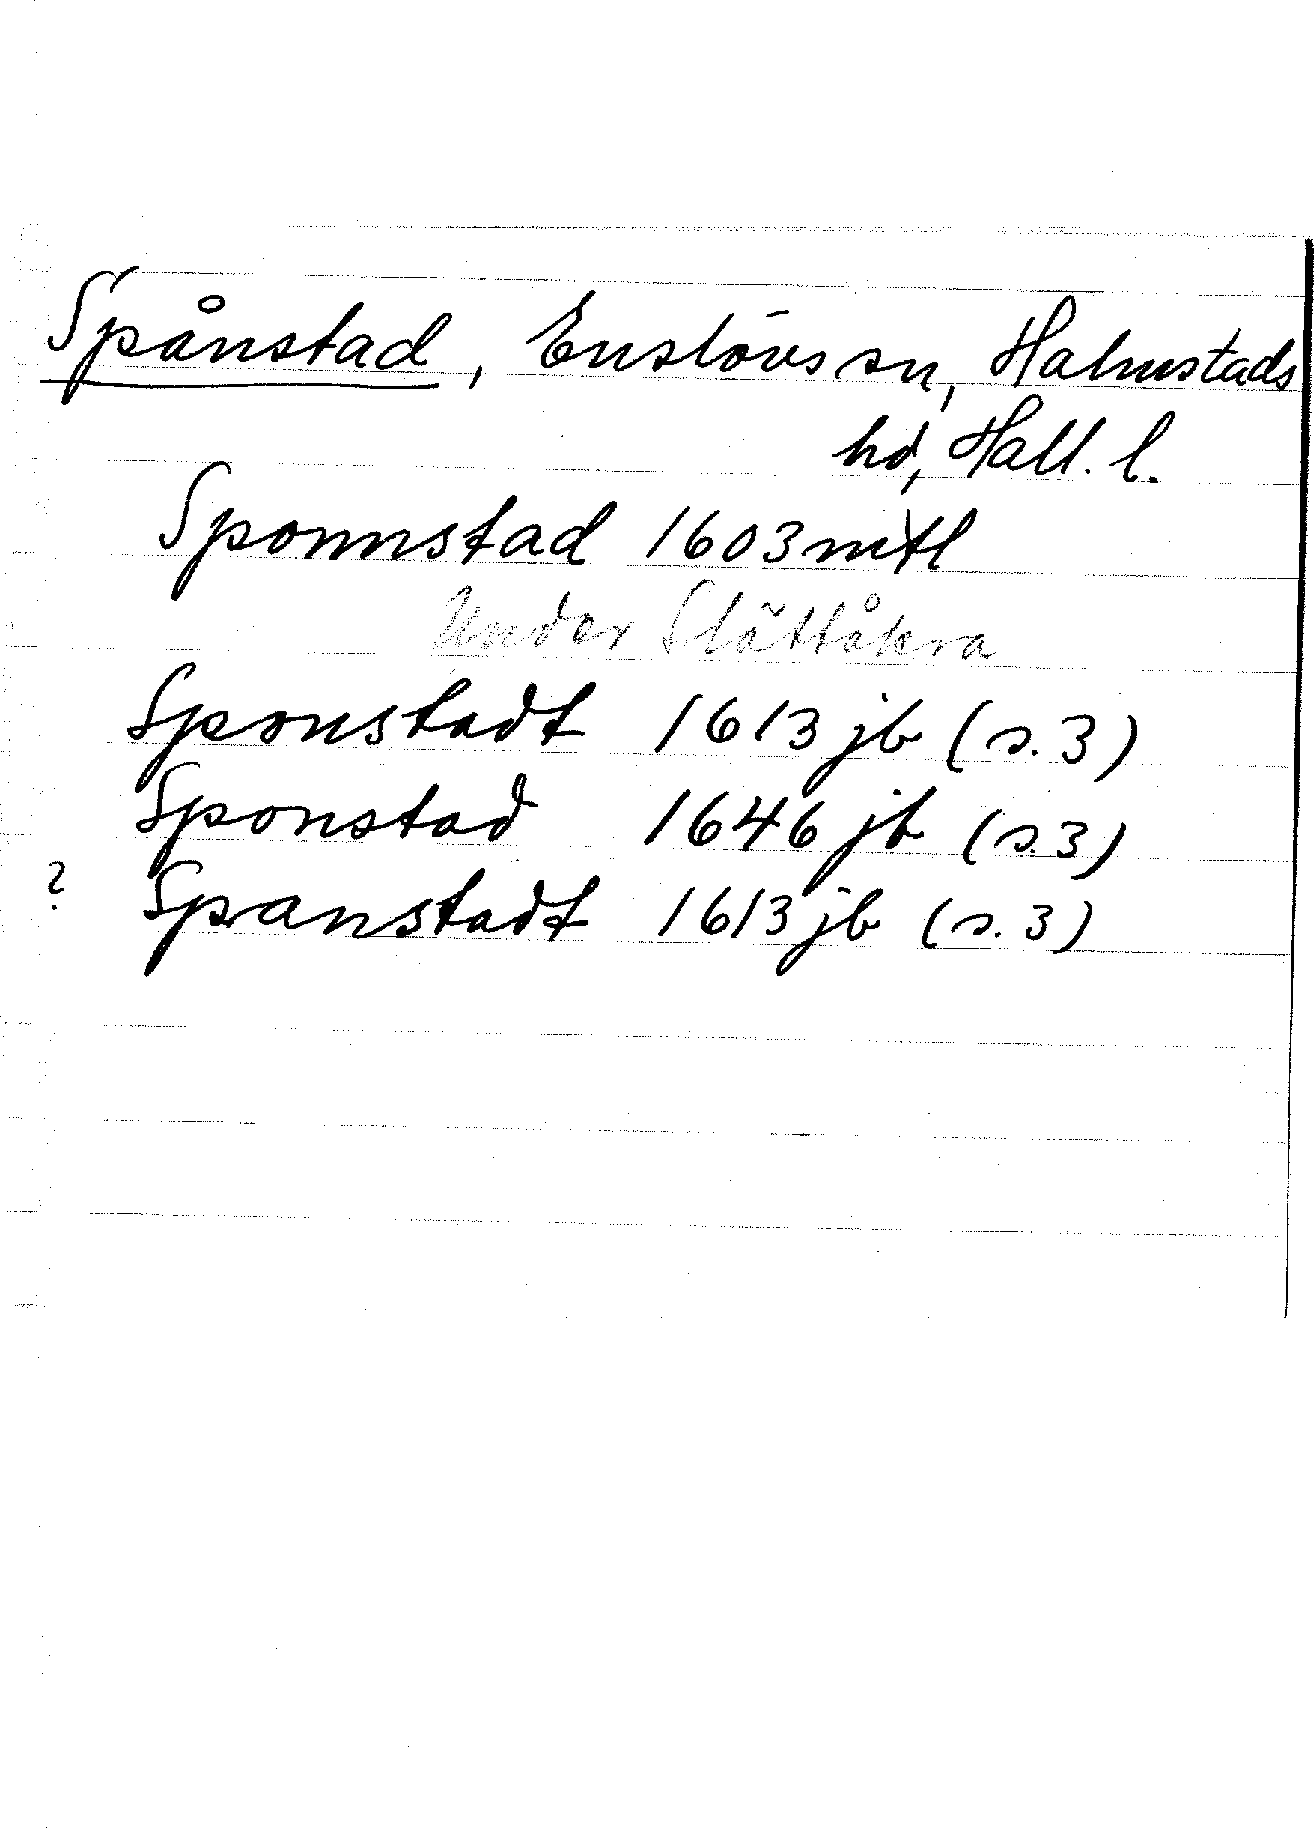 Spånstad, Enslövs sn, Halmstads
hd, Hall. l.
Sponnstad 1603 mtl
Under Slättåkra
Sponstadt 1613 jb (s. 3)
Sponstad 1646 jb (s. 3)
? Spanstadt 1613 jb (s. 3)